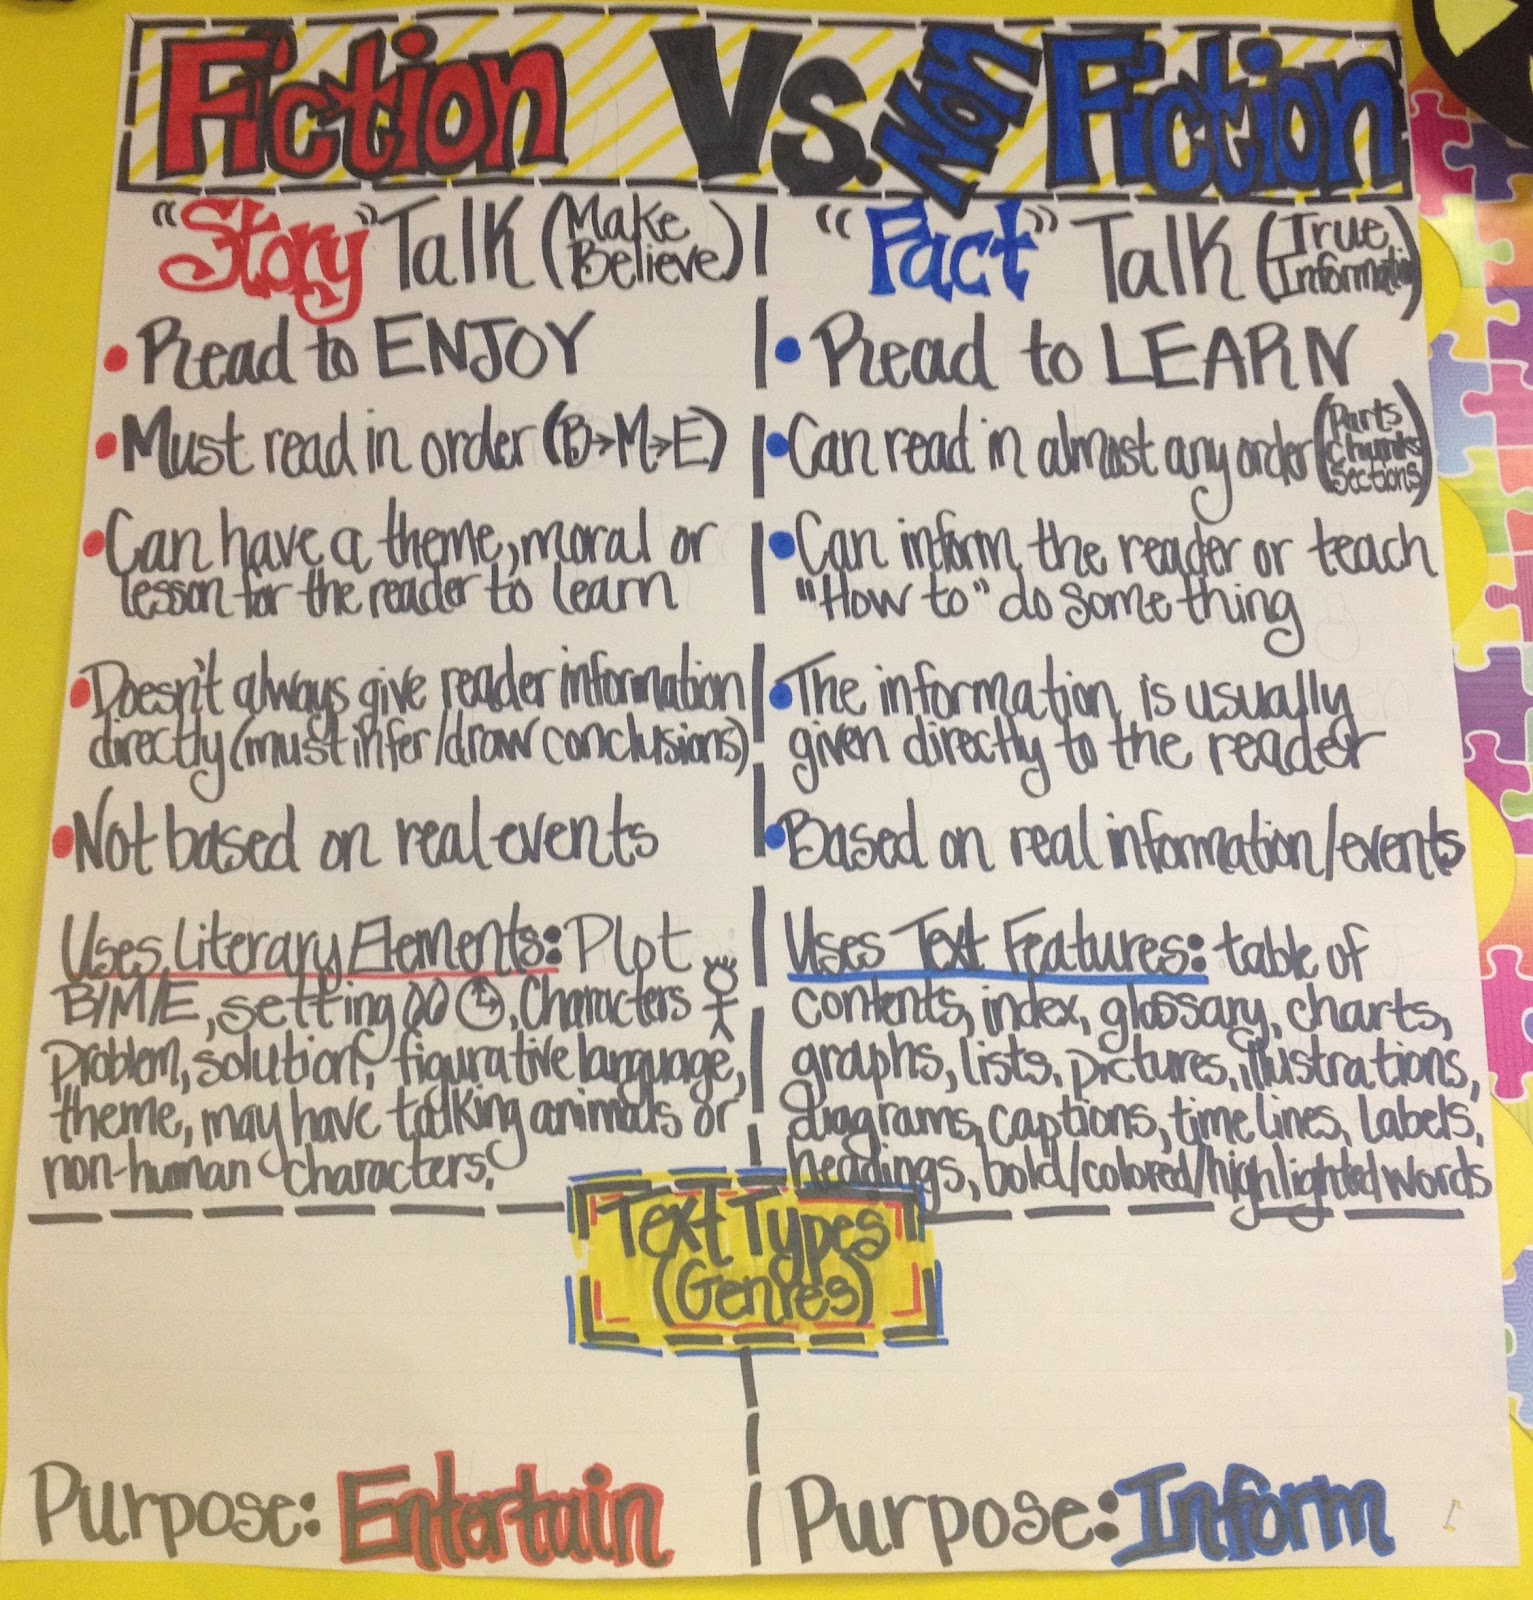 Fiction Vs. Non Fiction
"Story" Talk (Make Believe)
• Read to ENJOY
• Must read in order (B→M→E)
• Can have a theme, moral or
lesson for the reader to learn
• Doesn't always give reader information
directly (must infer/draw conclusions)
• Not based on real events
Uses Literary Elements: Plot
B/M/E, setting, Characters
problem, solution, figurative language,
theme, may have talking animals or
non-human characters.
"Fact" Talk (True Information)
• Read to LEARN
• Can read in almost any order (Parts Chunks Sections)
• Can inform the reader or teach
"How to" do something
• The information is usually
given directly to the reader
• Based on real information/events
Uses Text Features: table of
contents, index, glossary, charts,
graphs, lists, pictures, illustrations,
diagrams, captions, time lines, labels,
headings, bold/colored/highlighted words
Text Types
(Genres)
Purpose: Entertain
Purpose: Inform